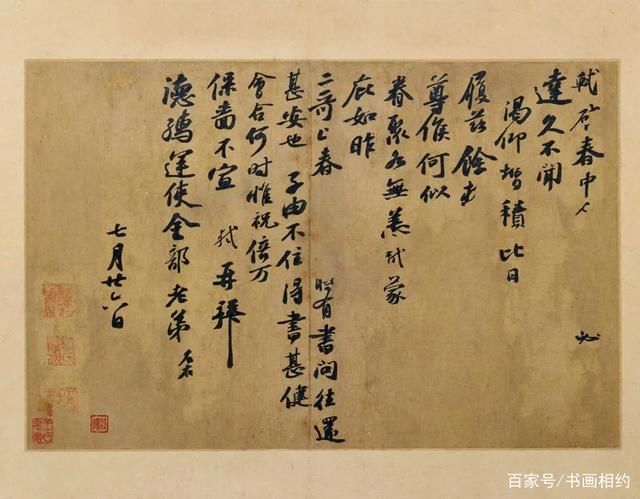 軾啓春中 必
達久不聞
渴仰增積比日
履兹餘
尊候何似
眷聚各無恙軾蒙
庇如昨
二哥上春 時有書問往還
甚安也 子由不住得書甚健
會合何時惟祝倍万
保嗇不宣 軾再拜
德孺運使金部老弟
七月廿六日
百家号/书画相约